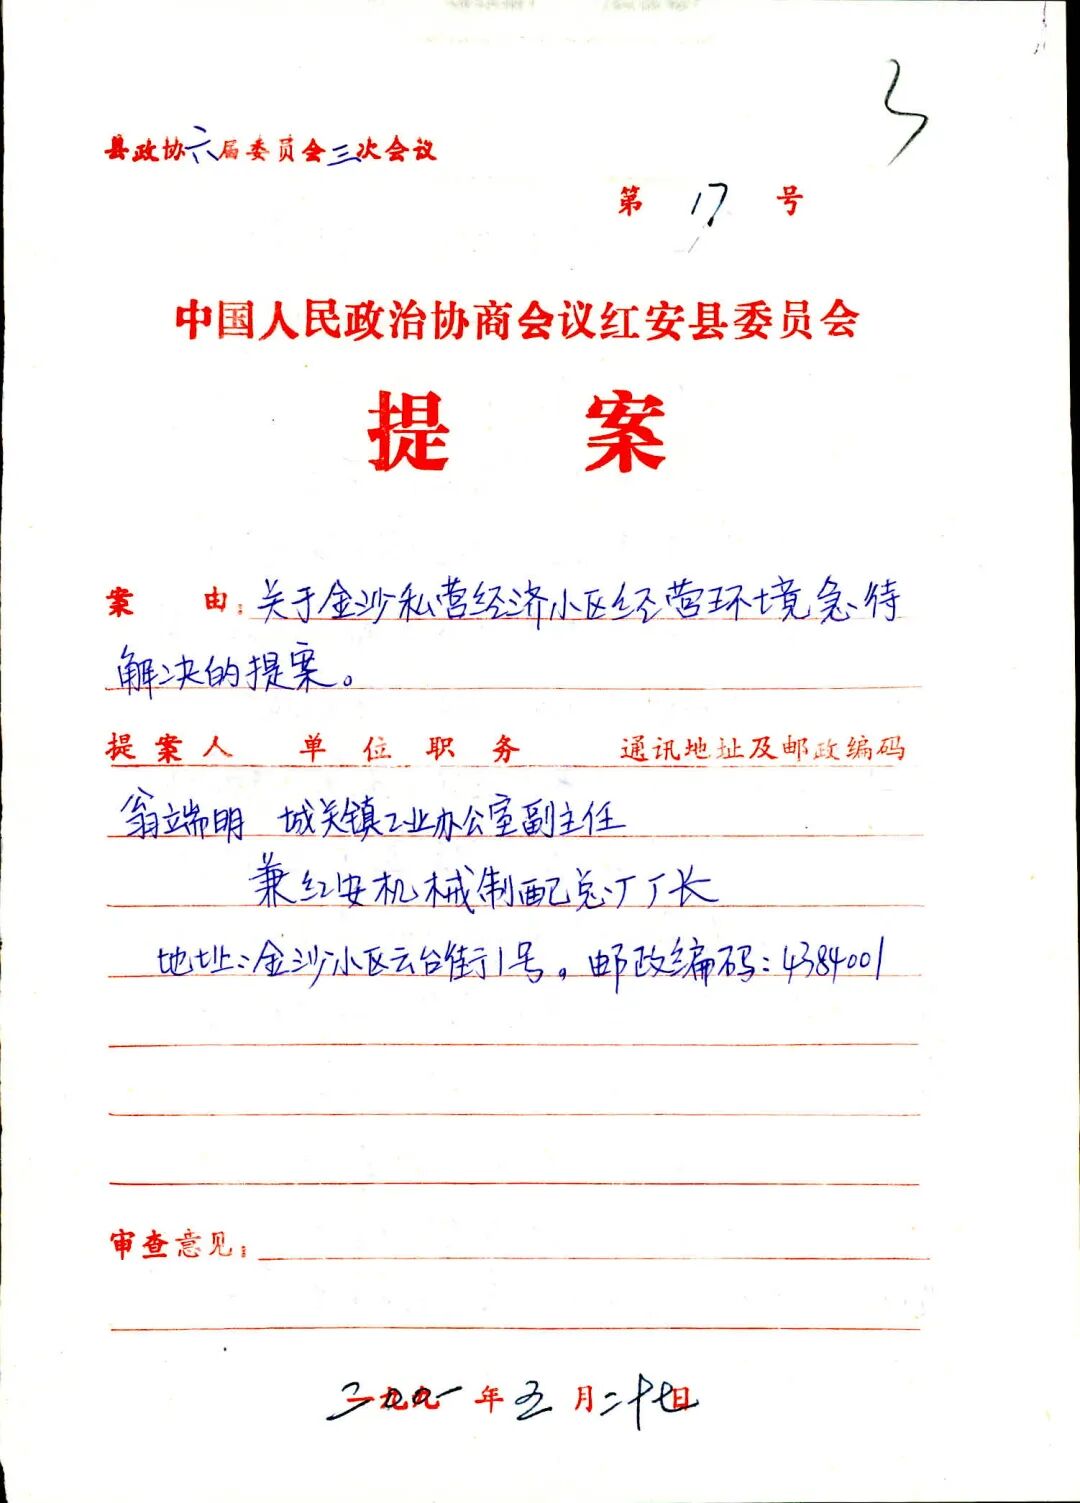 3
县政协六届委员会三次会议
第 17 号
中国人民政治协商会议红安县委员会
提 案
案 由：关于金沙私营经济小区经营环境急待
解决的提案。
提案人 单位职务 通讯地址及邮政编码
翁端明 城关镇工业办公室副主任
兼红安机械制配总厂厂长
地址：金沙小区云台街1号。邮政编码：4384001
审查意见：
二00一年五月二十七日